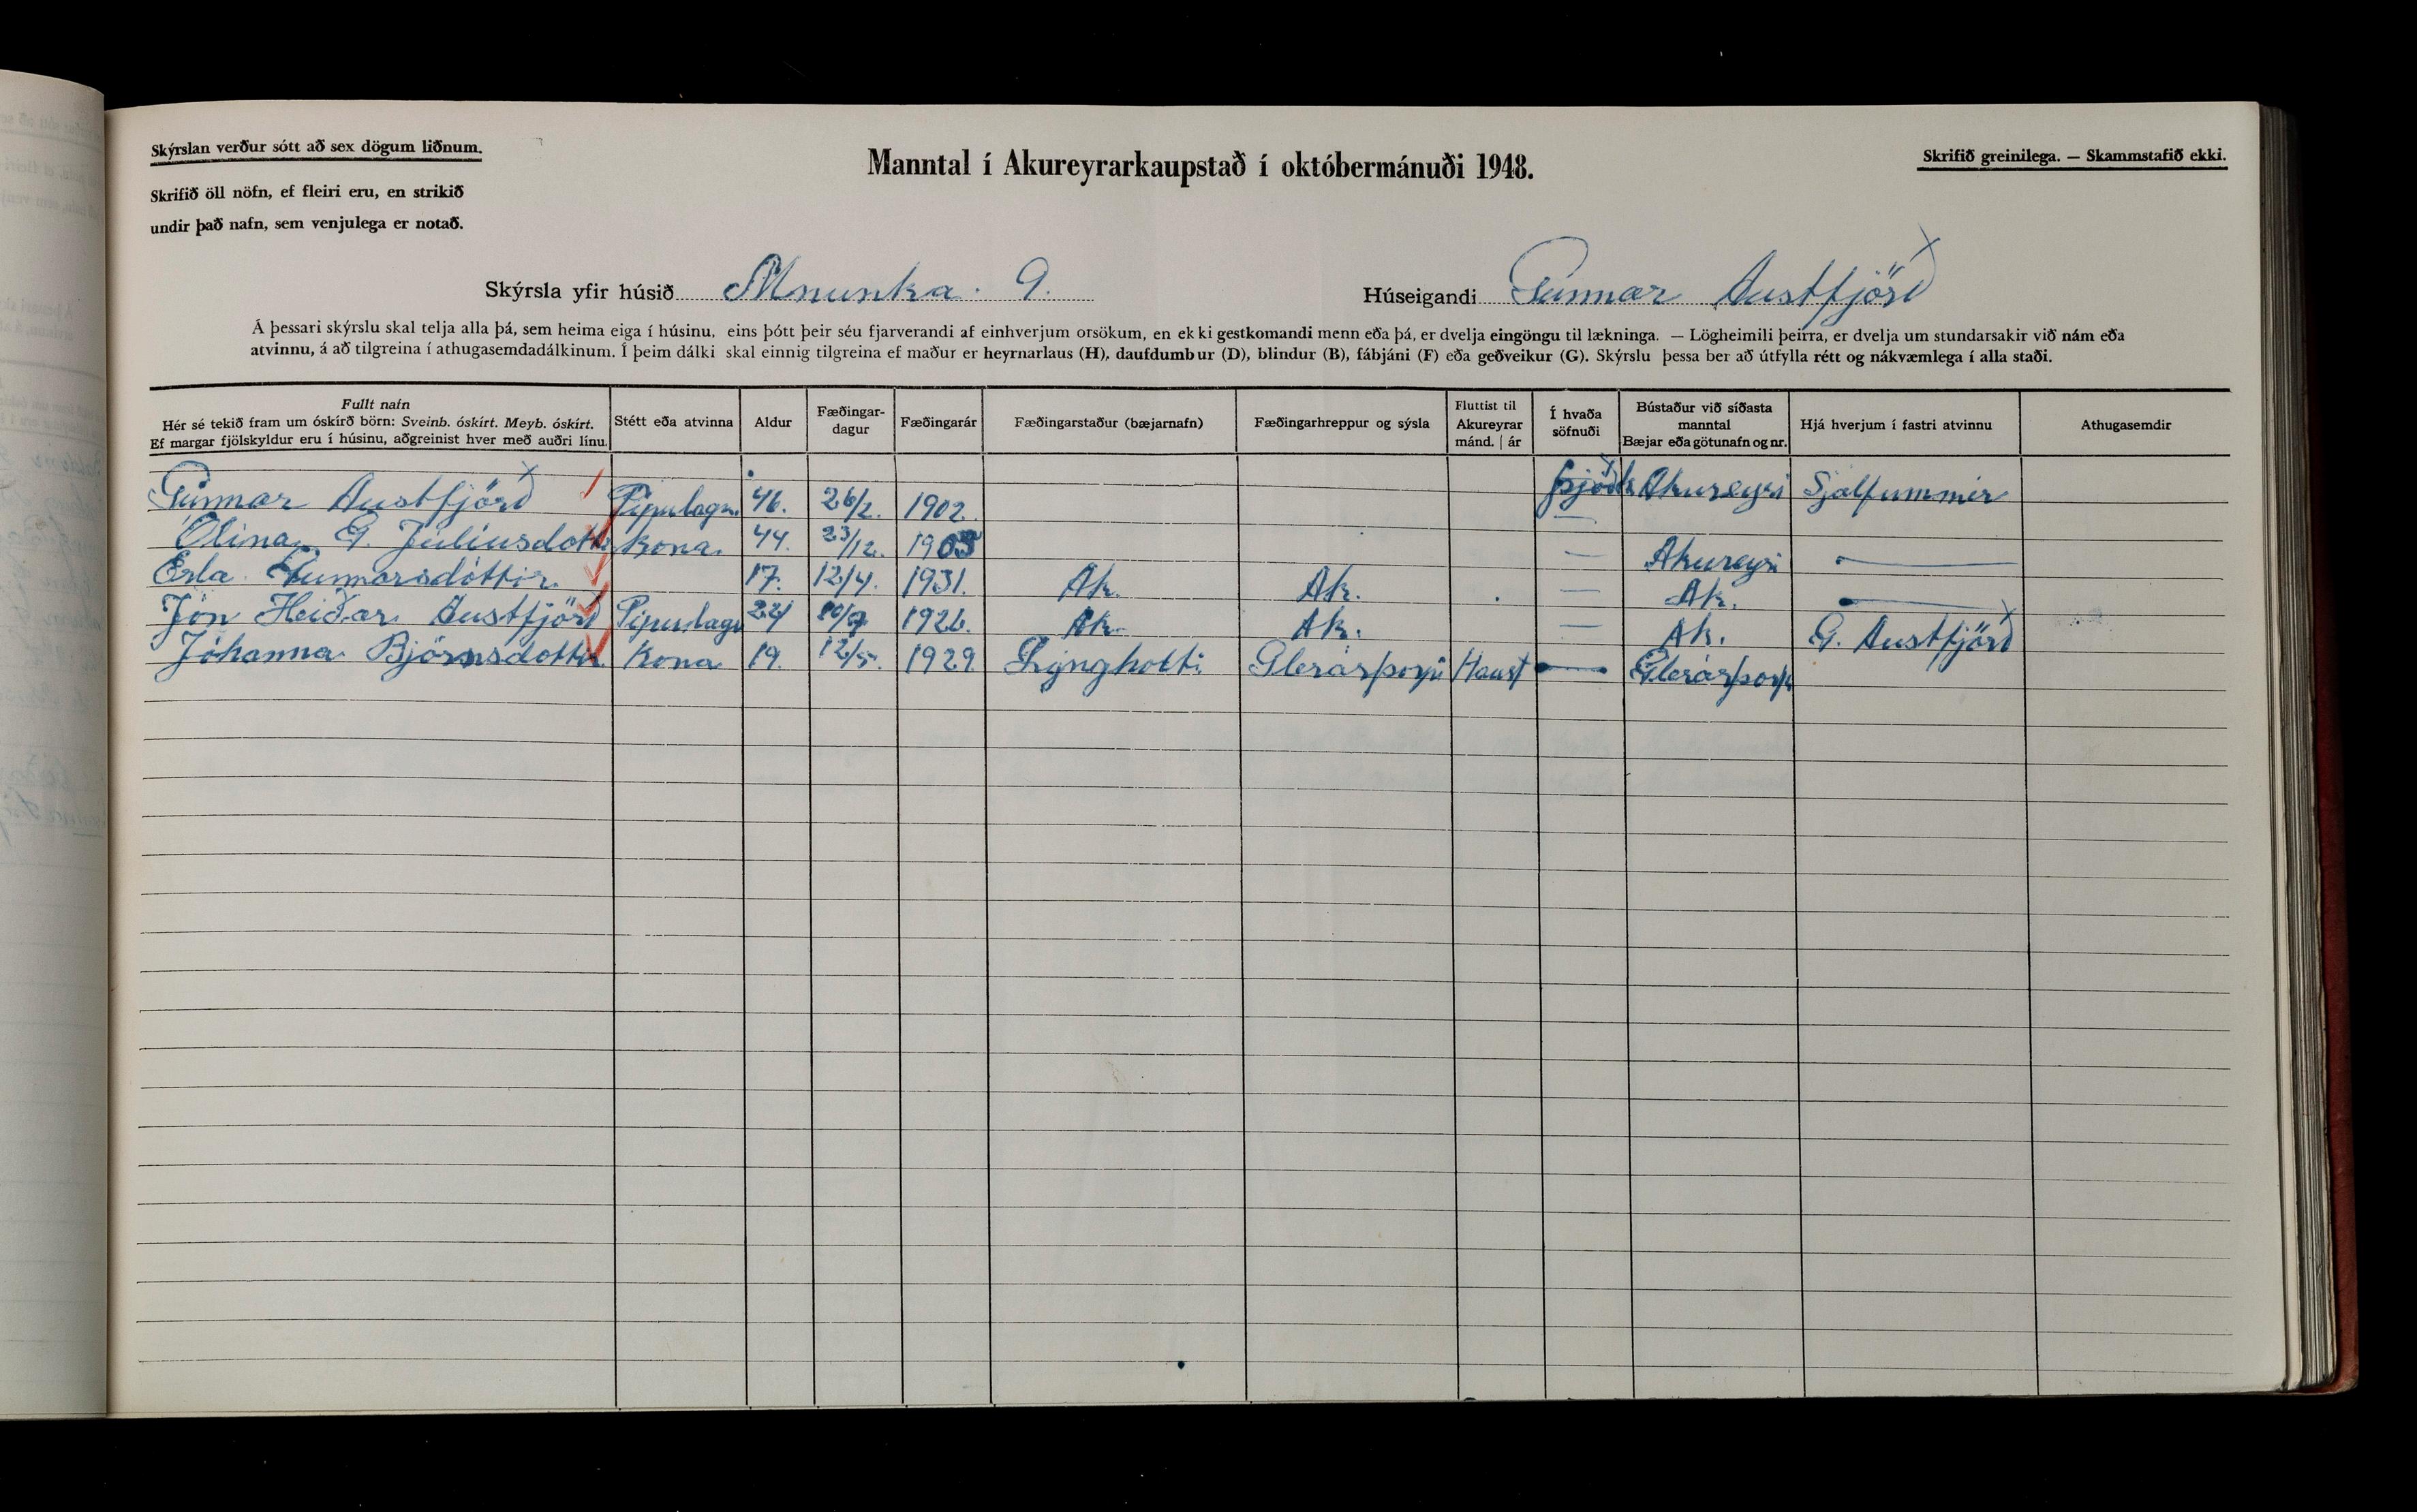 Skýrslan verður sótt að sex dögum liðnum.
Skrifið öll nöfn, ef fleiri eru, en strikið
undir það nafn, sem venjulega er notað.
Manntal í Akureyrarkaupstað í októbermánuði 1948.
Skrifið greinilega. — Skammstafið ekki.
Skýrsla yfir húsið Mnunka. 9.
Húseigandi Gunnar Austfjörð
Á þessari skýrslu skal telja alla þá, sem heima eiga í húsinu, eins þótt þeir séu fjarverandi af einhverjum orsökum, en ekki gestkomandi menn eða þá, er dvelja eingöngu til lækninga. — Lögheimili þeirra, er dvelja um stundarsakir við nám eða
atvinnu, á að tilgreina í athugasemdadálkinum. Í þeim dálki skal einnig tilgreina ef maður er heyrnarlaus (H), daufdumbur (D), blindur (B), fábjáni (F) eða geðveikur (G). Skýrslu þessa ber að útfylla rétt og nákvæmlega í alla staði.
Fullt nafn
Hér sé tekið fram um óskírð börn: Sveinb. óskírt. Meyb. óskírt.
Ef margar fjölskyldur eru í húsinu, aðgreinist hver með auðri línu.
Stétt eða atvinna
Aldur
Fæðingar-
dagur
Fæðingarár
Fæðingarstaður (bæjarnafn)
Fæðingarhreppur og sýsla
Fluttist til
Akureyrar
mánd. | ár
Í hvaða
söfnuði
Bústaður við síðasta
manntal
Bæjar eða götunafn og nr.
Hjá hverjum í fastri atvinnu
Athugasemdir
Gunnar Austfjörð Pípulagn. 46. 26/2. 1902. Þjóðk Akureyri Sjálfummér
Ólína G. Júlíusdottir Kona. 44. 23/12. 1903 — Akureyri —
Erla Gunnarsdóttir. 17. 12/4. 1931. Ak. Ak. — Ak. —
Jón Heiðar Austfjörð Pípulagn 22 10/9 1926. Ak. Ak. — Ak. G. Austfjörð
Jóhanna Björnsdottir Kona 19. 12/5. 1929 Lyngholti Glerárþorpi Haust — Glerárþorpi